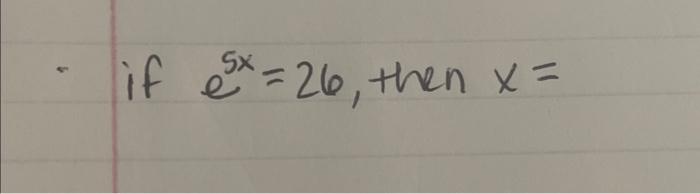 · if e^5x = 26, then x =